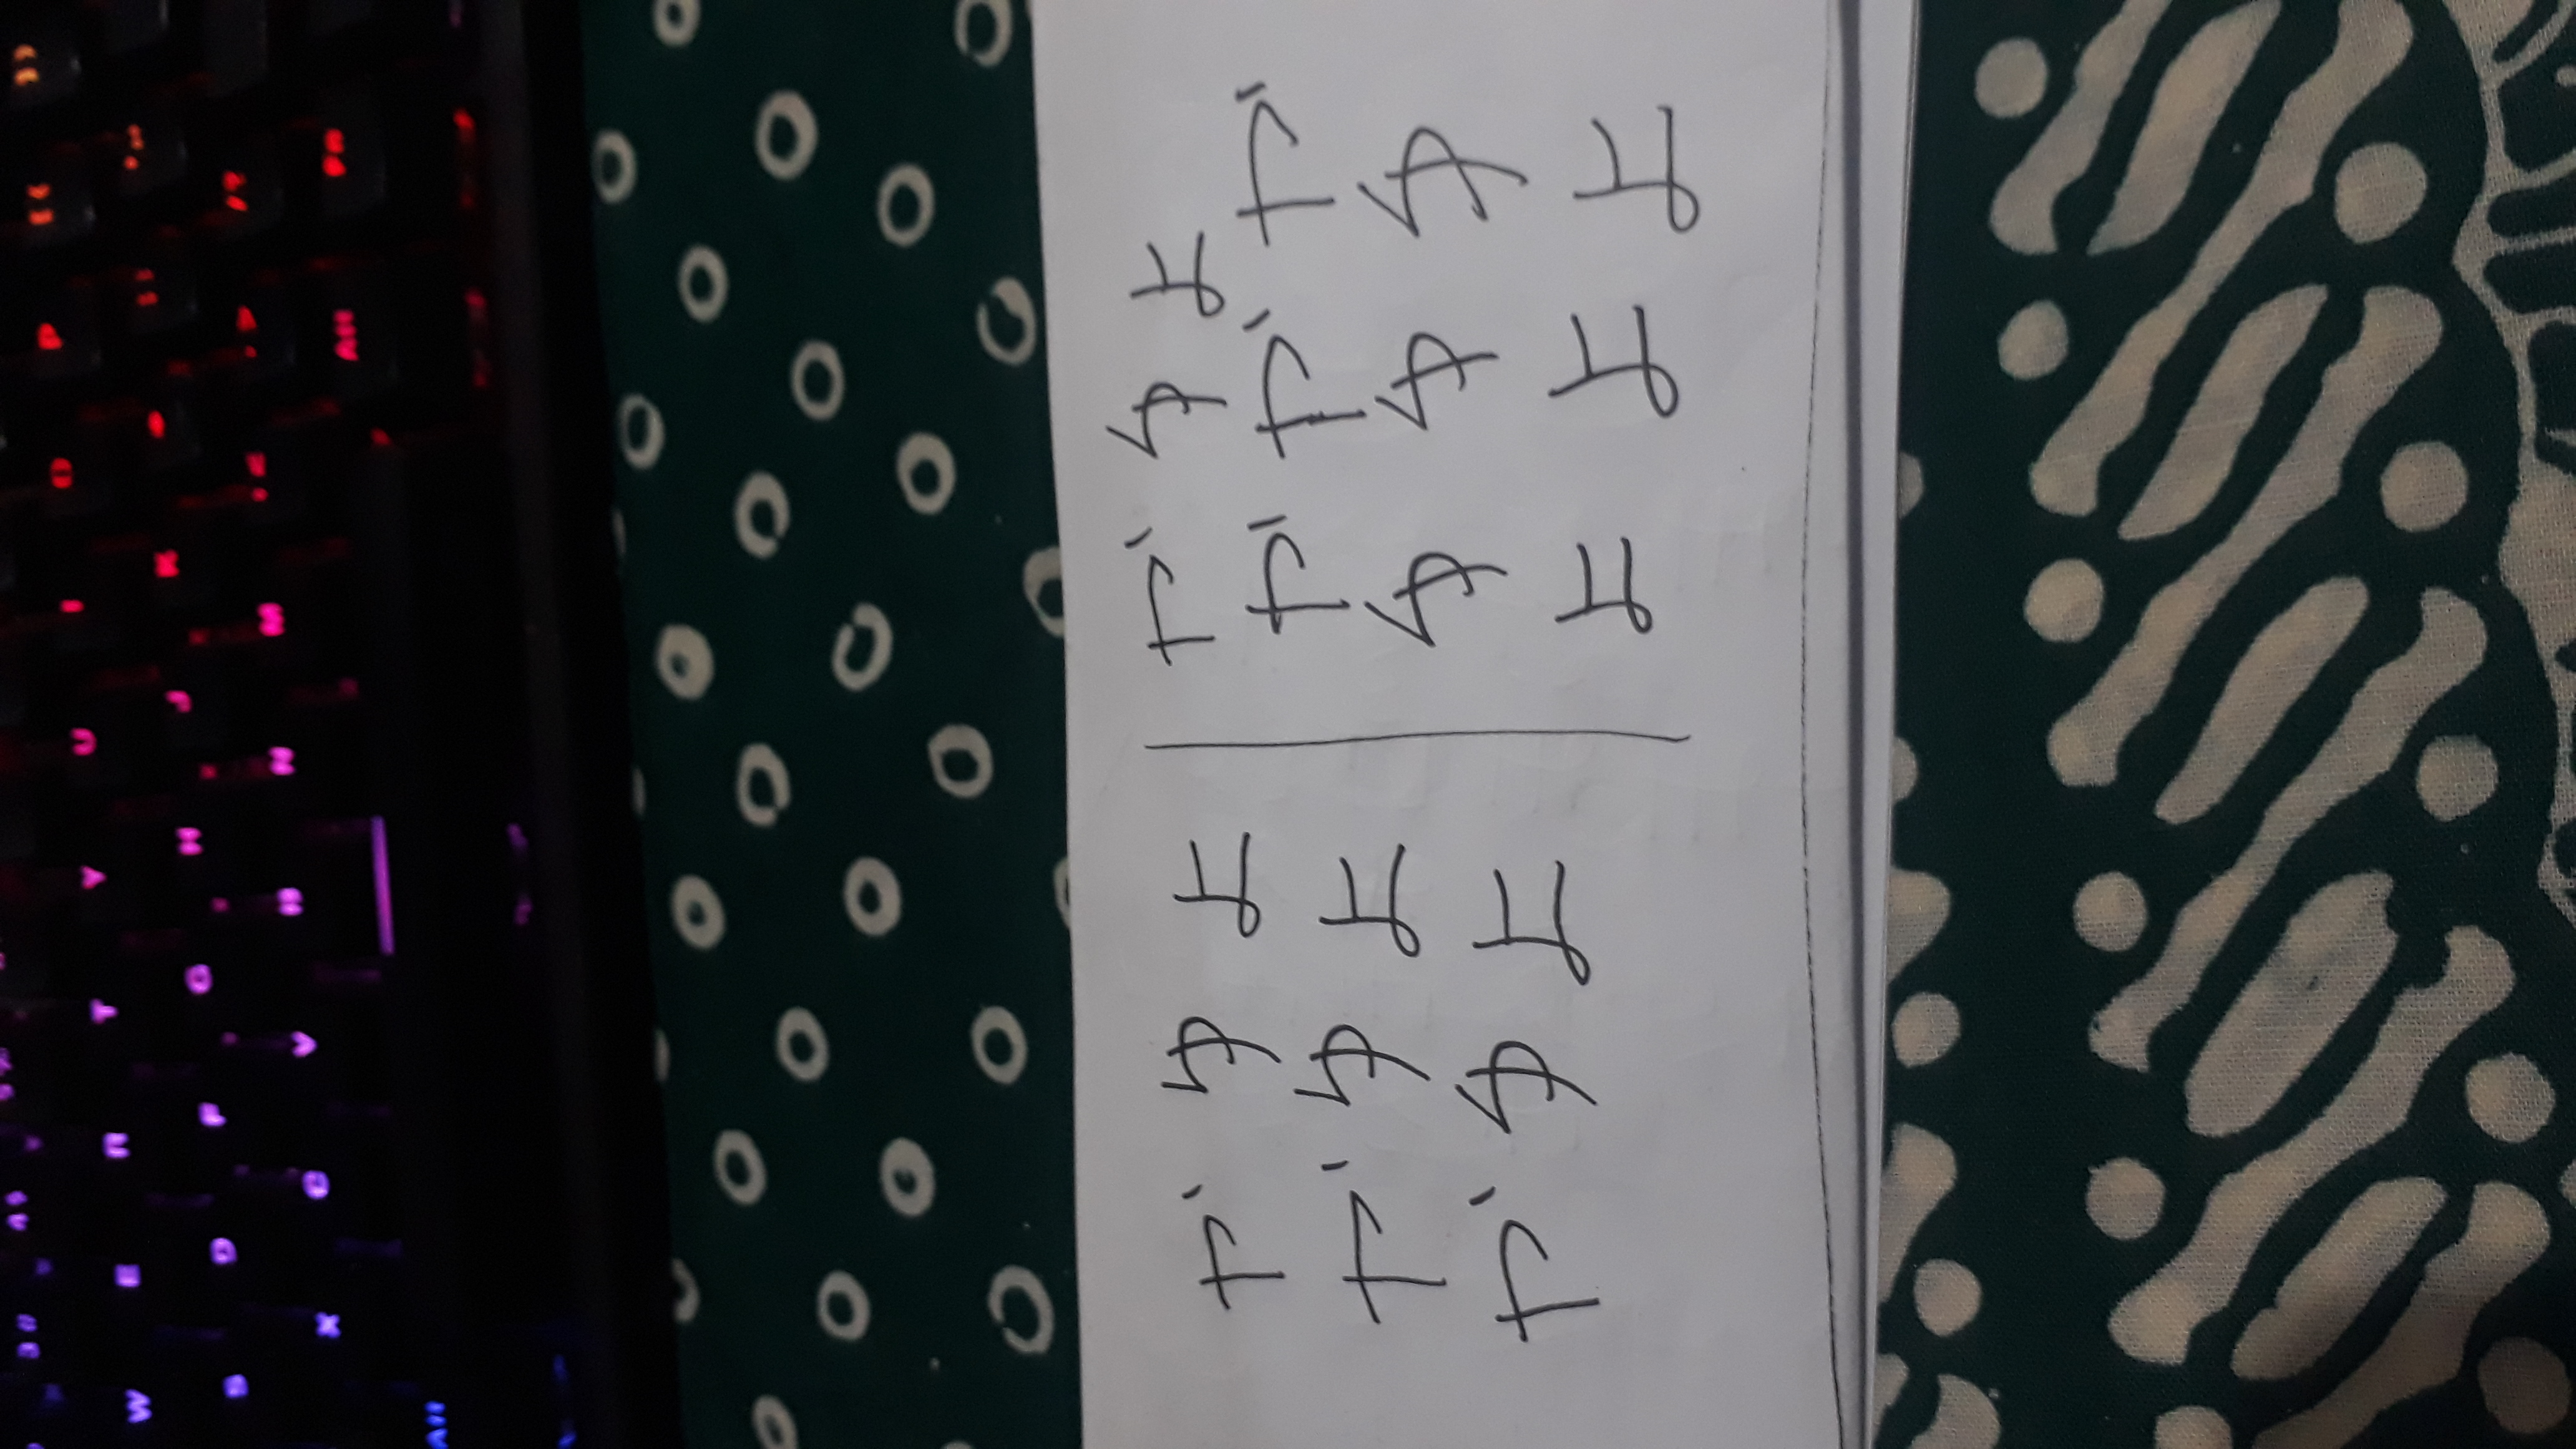 W E R T Y U I O P
S D F G H J K
X C V B N M
Alt Alt Fn
や ゆ よ
や ゆ よ
や ゆ よ
や ゆ よ
や や や
ゆ ゆ ゆ
よ よ よ